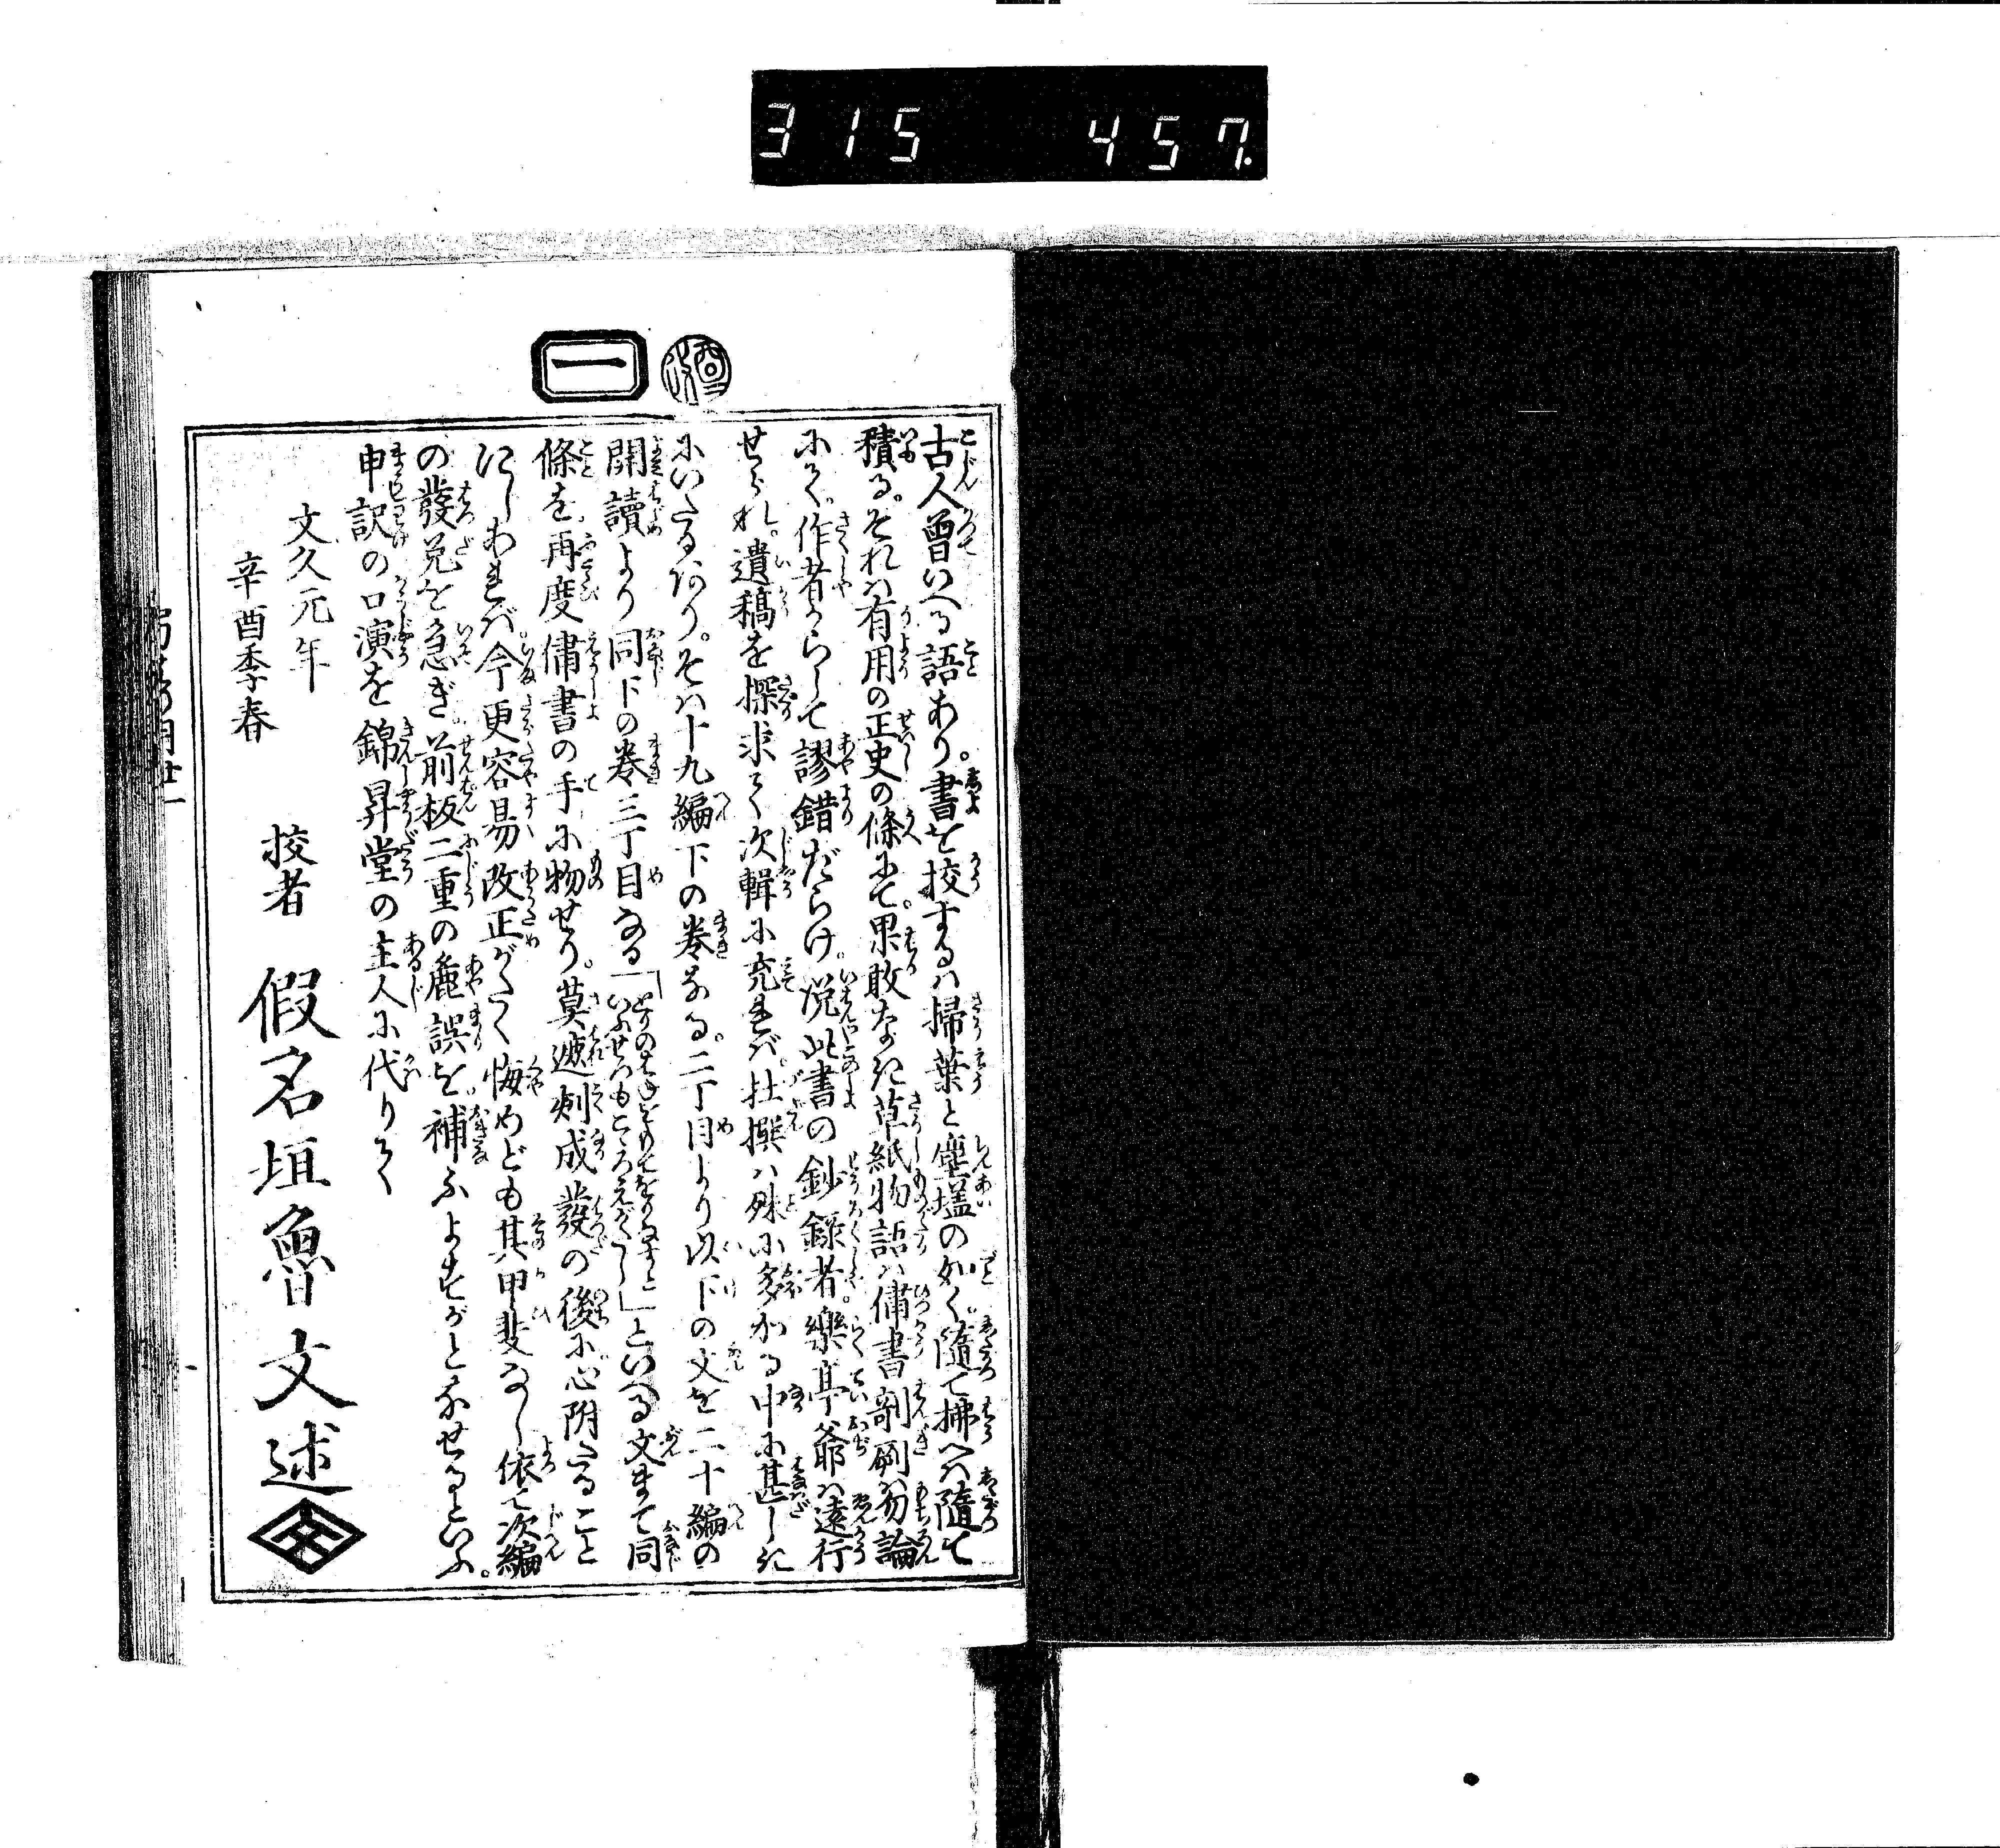 315 457.
一
古人曾いへる語あり。書を挍するは掃葉と塵埃の如く。隨て拂へは隨て
積る。それは有用の正史の條にて。果敢なき草紙物語は傭書剞劂は勿論
にて。作者からして謬錯だらけ。况此書の鈔録者。樂亭爺は遠行
せられ。遺稿を探求て次輯に充れば。杜撰は殊に多かる中に甚しき
にいたるあり。そは十九編下の巻なる。二丁目より以下の文を二十編の
開讀より同下の巻三丁目なる「とりのはねをもてをりなすと
いふせつもこころえがたし」といへる文まて同
條を再度傭書の手に物せり。莫遮刻成發の後に心附たること
にしあれば今更容易改正がたく悔めども其甲斐なし依て次編
の發兌を急ぎ前板二重の麁誤を。補ふよすがとなせるといふ。
申訳の口演を錦昇堂の主人に代りて
文久元年
辛酉季春
挍者 假名垣魯文述